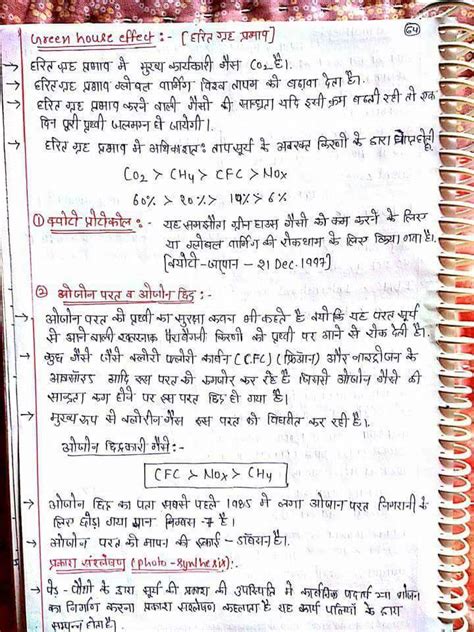 64
Green house effect :- [हरित गृह प्रभाव]
→ हरित गृह प्रभाव में मुख्य कार्यकारी गैस CO2 है।
→ हरित गृह प्रभाव ग्लोबल वार्मिंग विश्व तापन को बढ़ावा देता है।
→ हरित गृह प्रभाव करने वाली गैसों की सान्द्रता यदि इसी क्रम बढ़ती रही तो एक
दिन पूरी पृथ्वी जलमग्न हो जायेगी।
→ हरित गृह प्रभाव में अधिकांशतः ताप सूर्य के अवरक्त किरणों के द्वारा
CO2 > CH4 > CFC > NOx
60% > 20% > 14% > 6%
① क्योटो प्रोटोकोल :- यह समझौता ग्रीन हाउस गैसों को कम करने के लिए
या ग्लोबल वार्मिंग की रोकथाम के लिए किया गया है।
[क्योटो-जापान - 21 Dec. 1997]
② ओजोन परत व ओजोन छिद्र :-
→ ओजोन परत को पृथ्वी का सुरक्षा कवच भी कहते है क्यों कि यह परत सूर्य
से आने वाली खतरनाक पैराबैंगनी किरणों को पृथ्वी पर आने से रोक देती है।
→ कुछ गैसें जैसे क्लोरो फ्लोरो कार्बन (CFC) (फ्रिऑन) और नाइट्रोजन के
आक्साइड आदि इस परत को कमजोर कर रहे हैं जिससे ओजोन गैस की
सान्द्रता कम होने पर इस परत छिद्र हो गया है।
→ मुख्य रूप से क्लोरीन गैस इस परत को विघटित कर रही है।
ओजोन छिद्रकारी गैसें :-
CFC > NOx > CH4
→ ओजोन छिद्र का पता सबसे पहले 1985 में लगा ओजोन परत निगरानी के
लिए छोड़ा गया यान निम्बस - 7 है।
→ ओजोन परत की मापन की इकाई - डाब्सन है।
प्रकाश संश्लेषण (photo-synthesis) :-
→ पेड़ - पौधों के द्वारा सूर्य की प्रकाश की उपस्थिति में कार्बनिक पदार्थ या भोजन
का निर्माण करना प्रकाश संश्लेषण कहलाता है यह कार्य पत्तियों के द्वारा
सम्पन्न होता है।